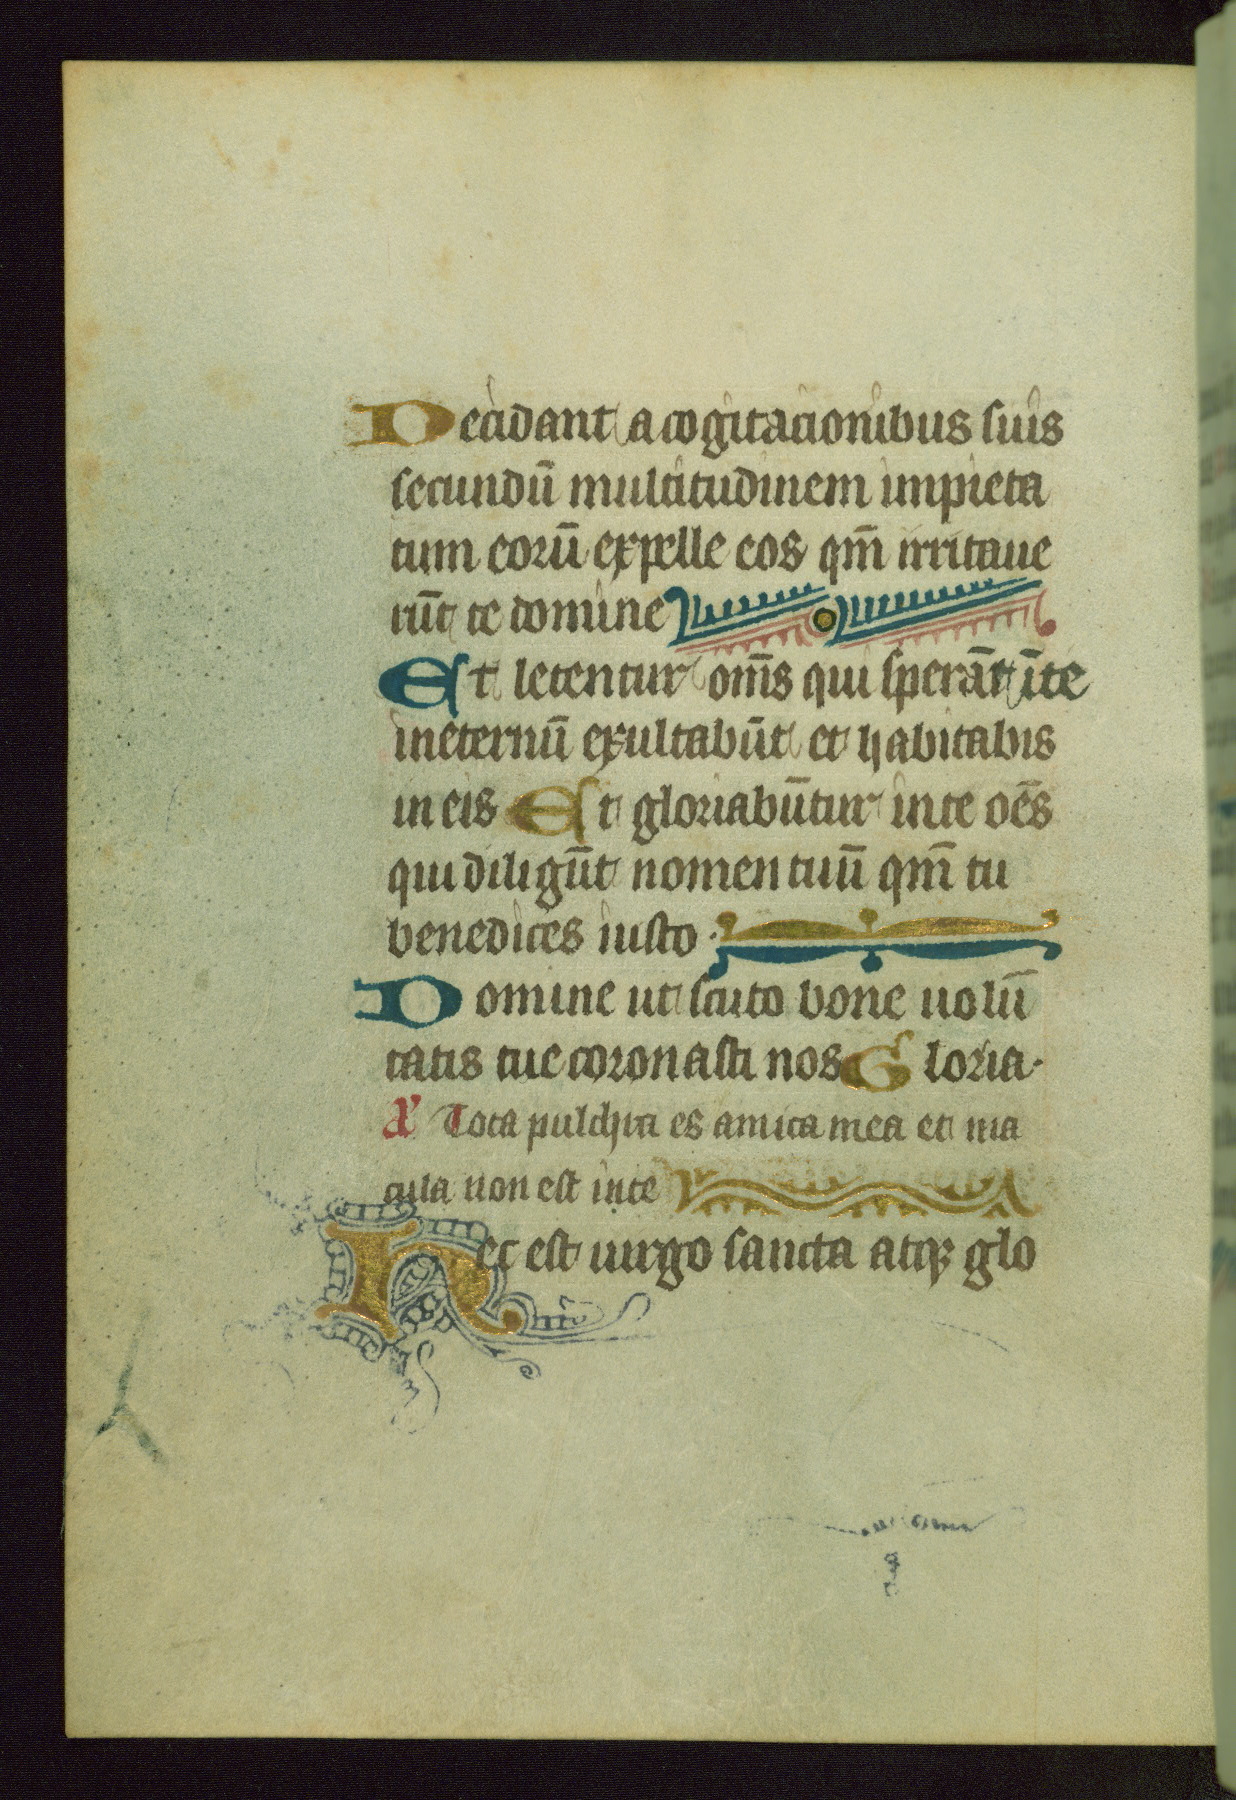 Decidant a cogitacionibus suis
secundū multitudinem impieta
tum eorū expelle eos qm̄ irritaue
rūt te domine
Et letentur om̄s qui sperāt īte
ineternū exultabūt et habitabis
in eis Et gloriabūtur in te oēs
qui diligūt nomen tuū qm̄ tu
benedices iusto ·
Domine ut scuto bone uolū
tatis tue coronasti nos Gloria·
Tota pulchra es amica mea et ma
cula non est in te
Hec est uirgo sancta atqꝫ glo